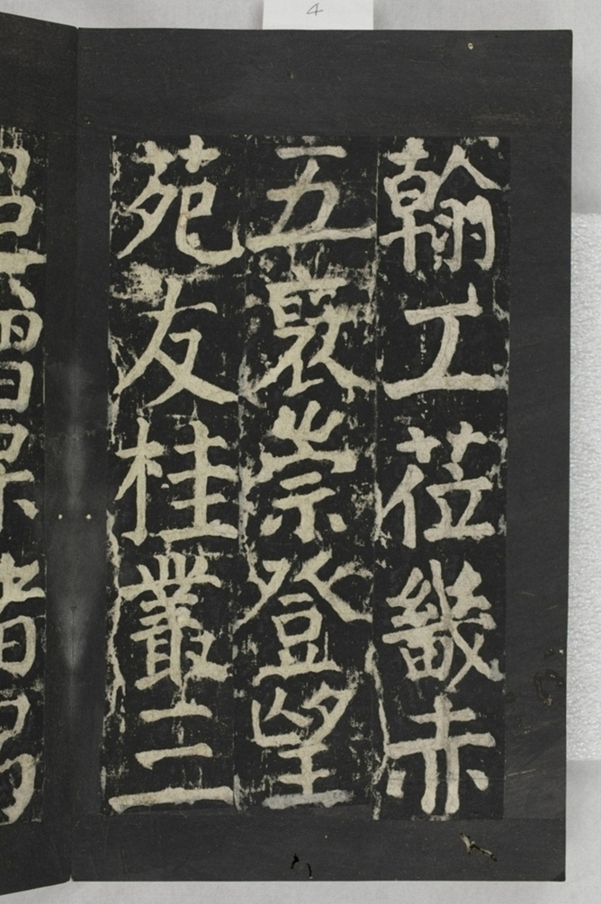 翰工莅畿赤
五袠崇登望
苑友桂叢三
4